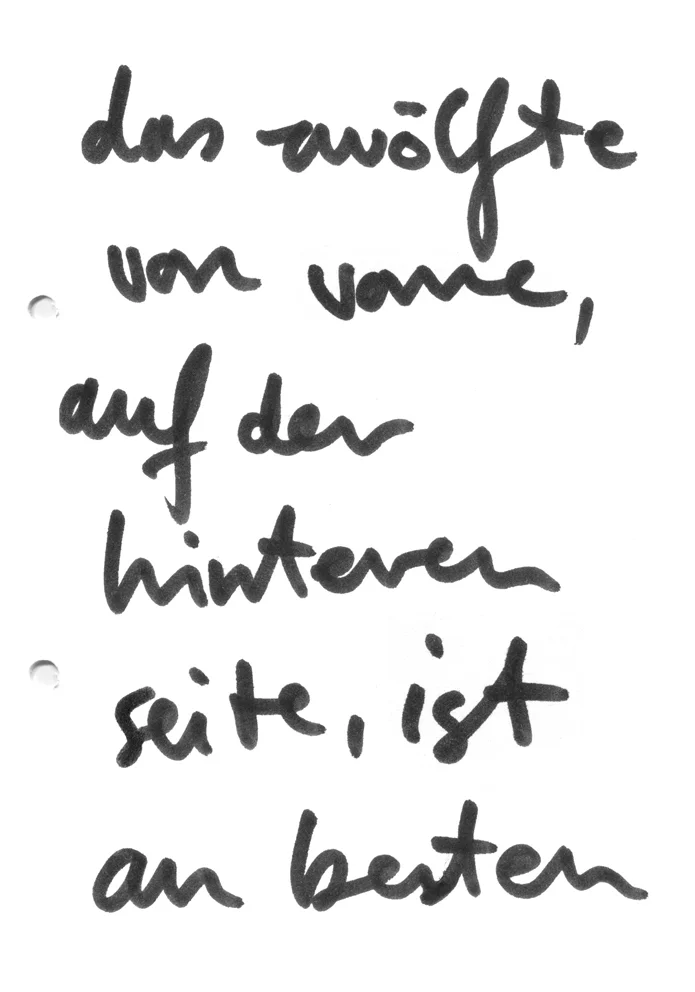 das zwölfte
von vorne,
auf der
hinteren
seite, ist
am besten